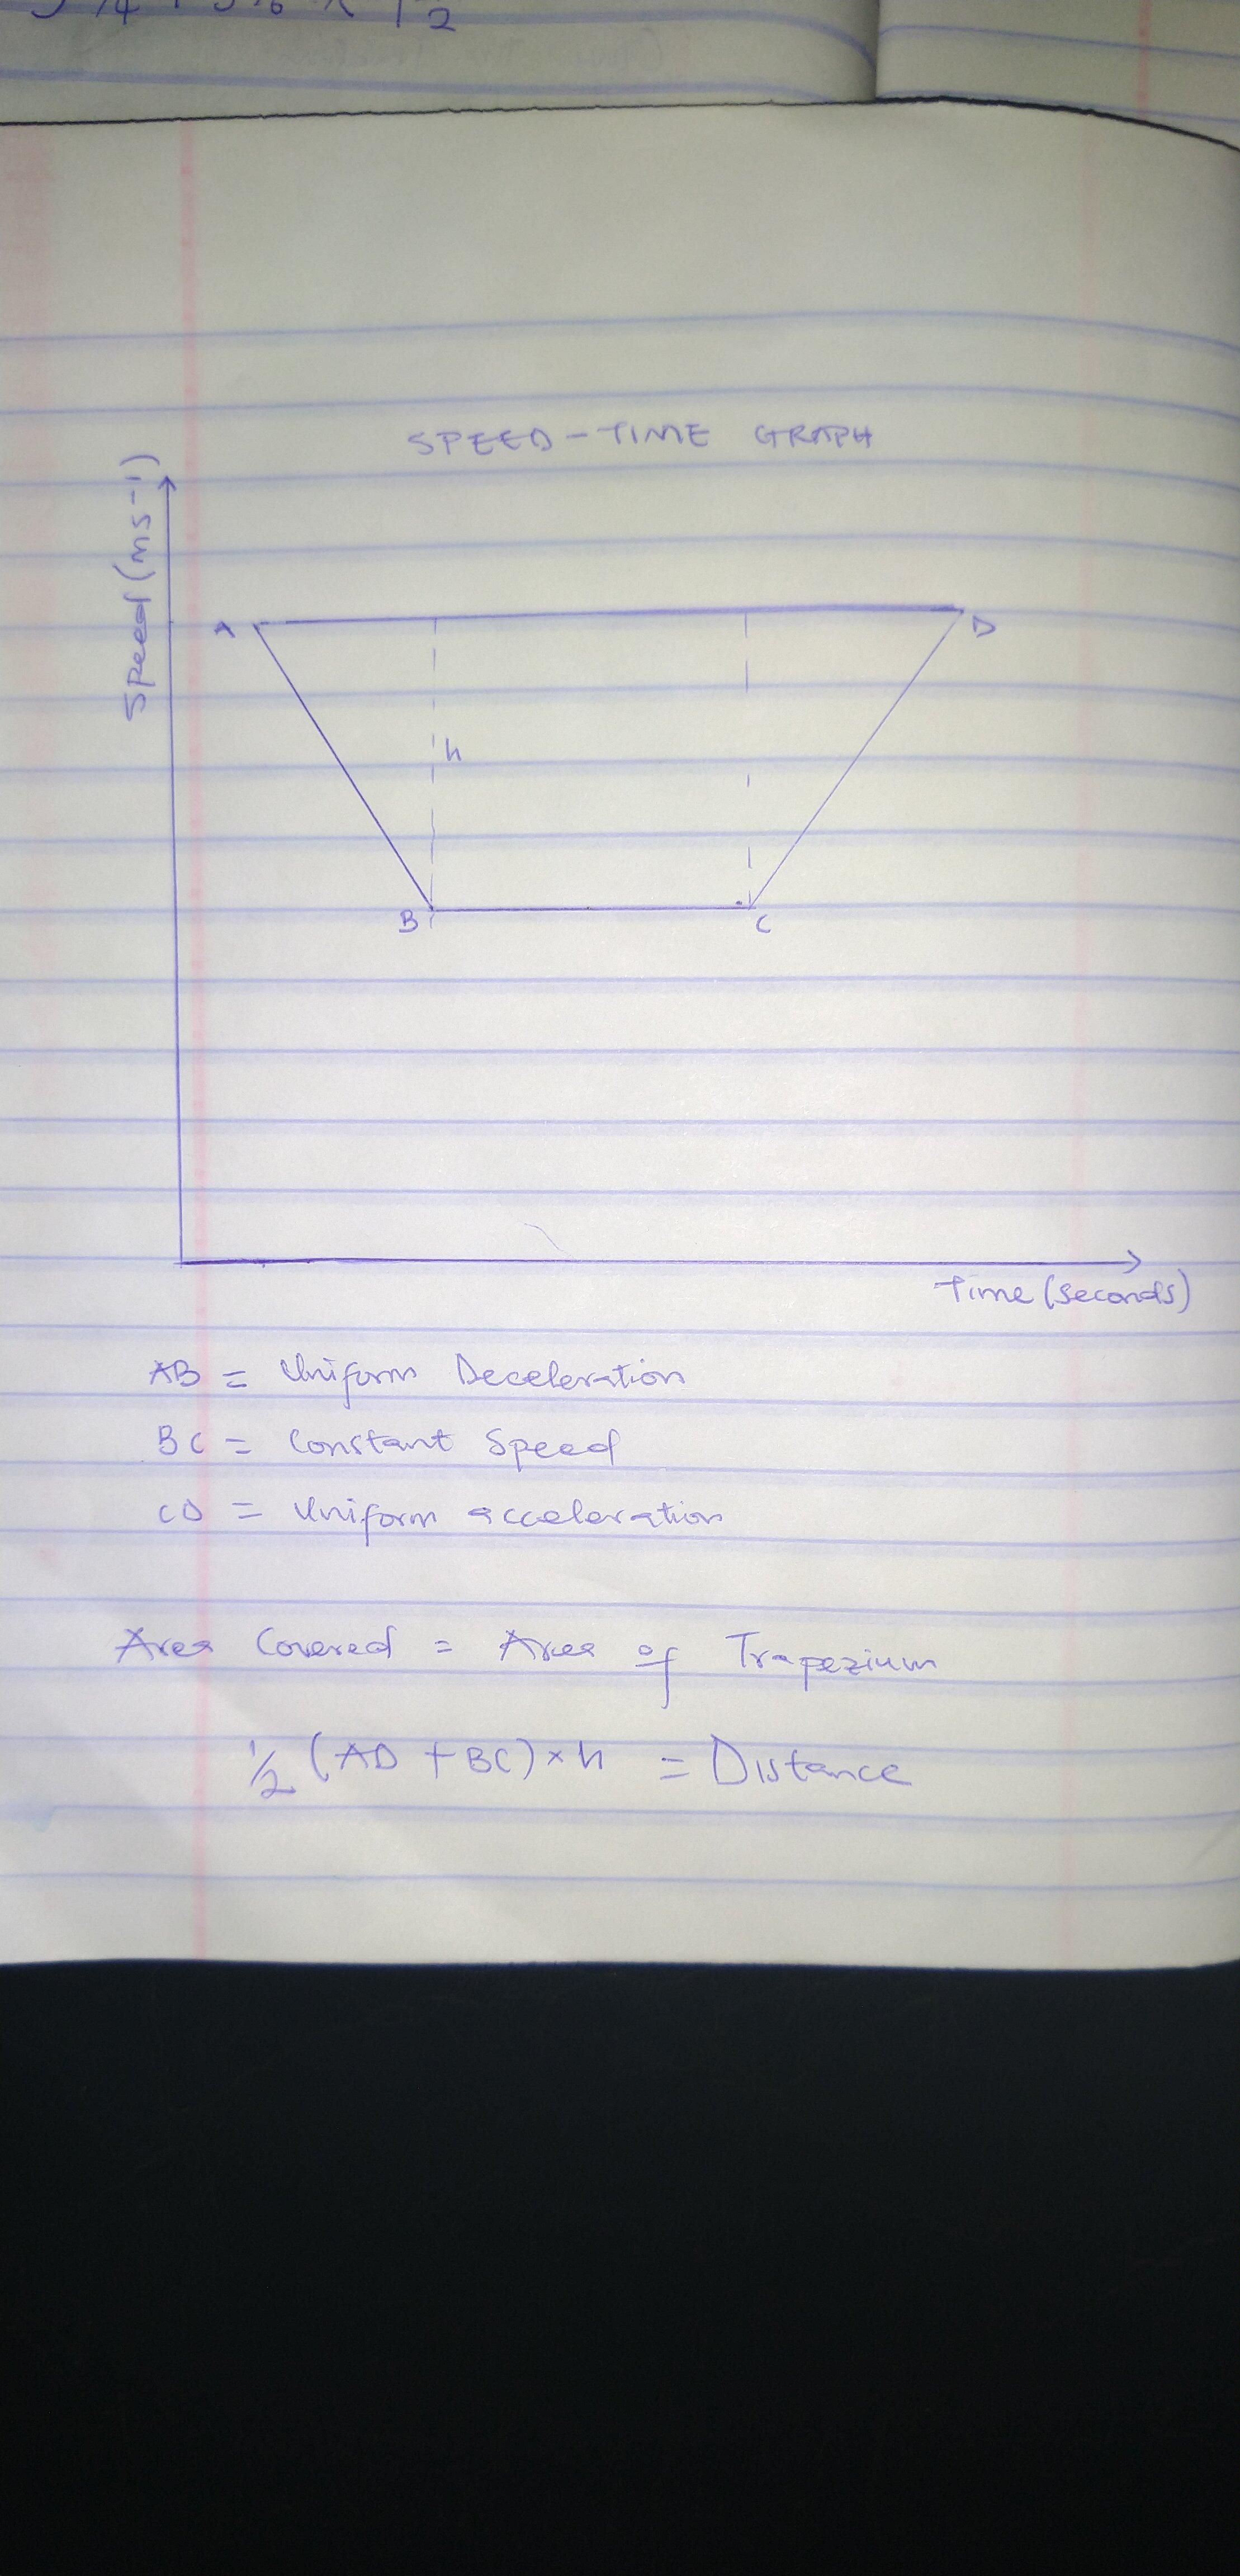 SPEED-TIME GRAPH
Speed (ms-1)
A
D
h
B
C
Time (seconds)
AB = Uniform Deceleration
BC = Constant Speed
CD = Uniform acceleration
Area Covered = Area of Trapezium
1/2 (AD + BC) × h = Distance